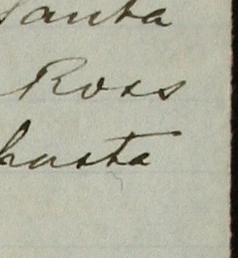 Santa
Ross
hasta